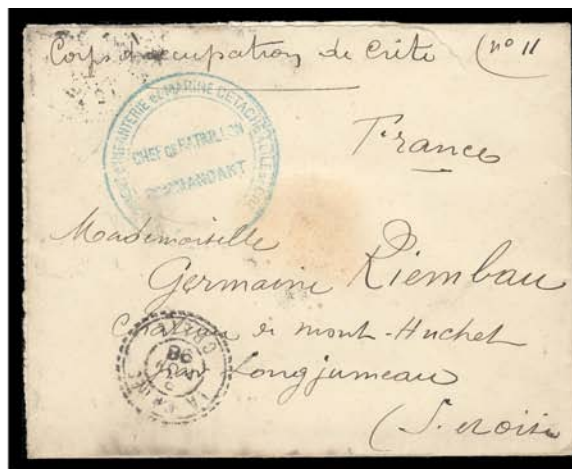 Corps d'occupation de Crète (n° 11
INFANTERIE DE MARINE DÉTACHÉ
CHEF DE BATAILLON
COMMANDANT
France
Mademoiselle
Germaine Riembau
Château de Mont-Huchet
par Longjumeau
(S. et oise
CRETE
98
LA CANEE